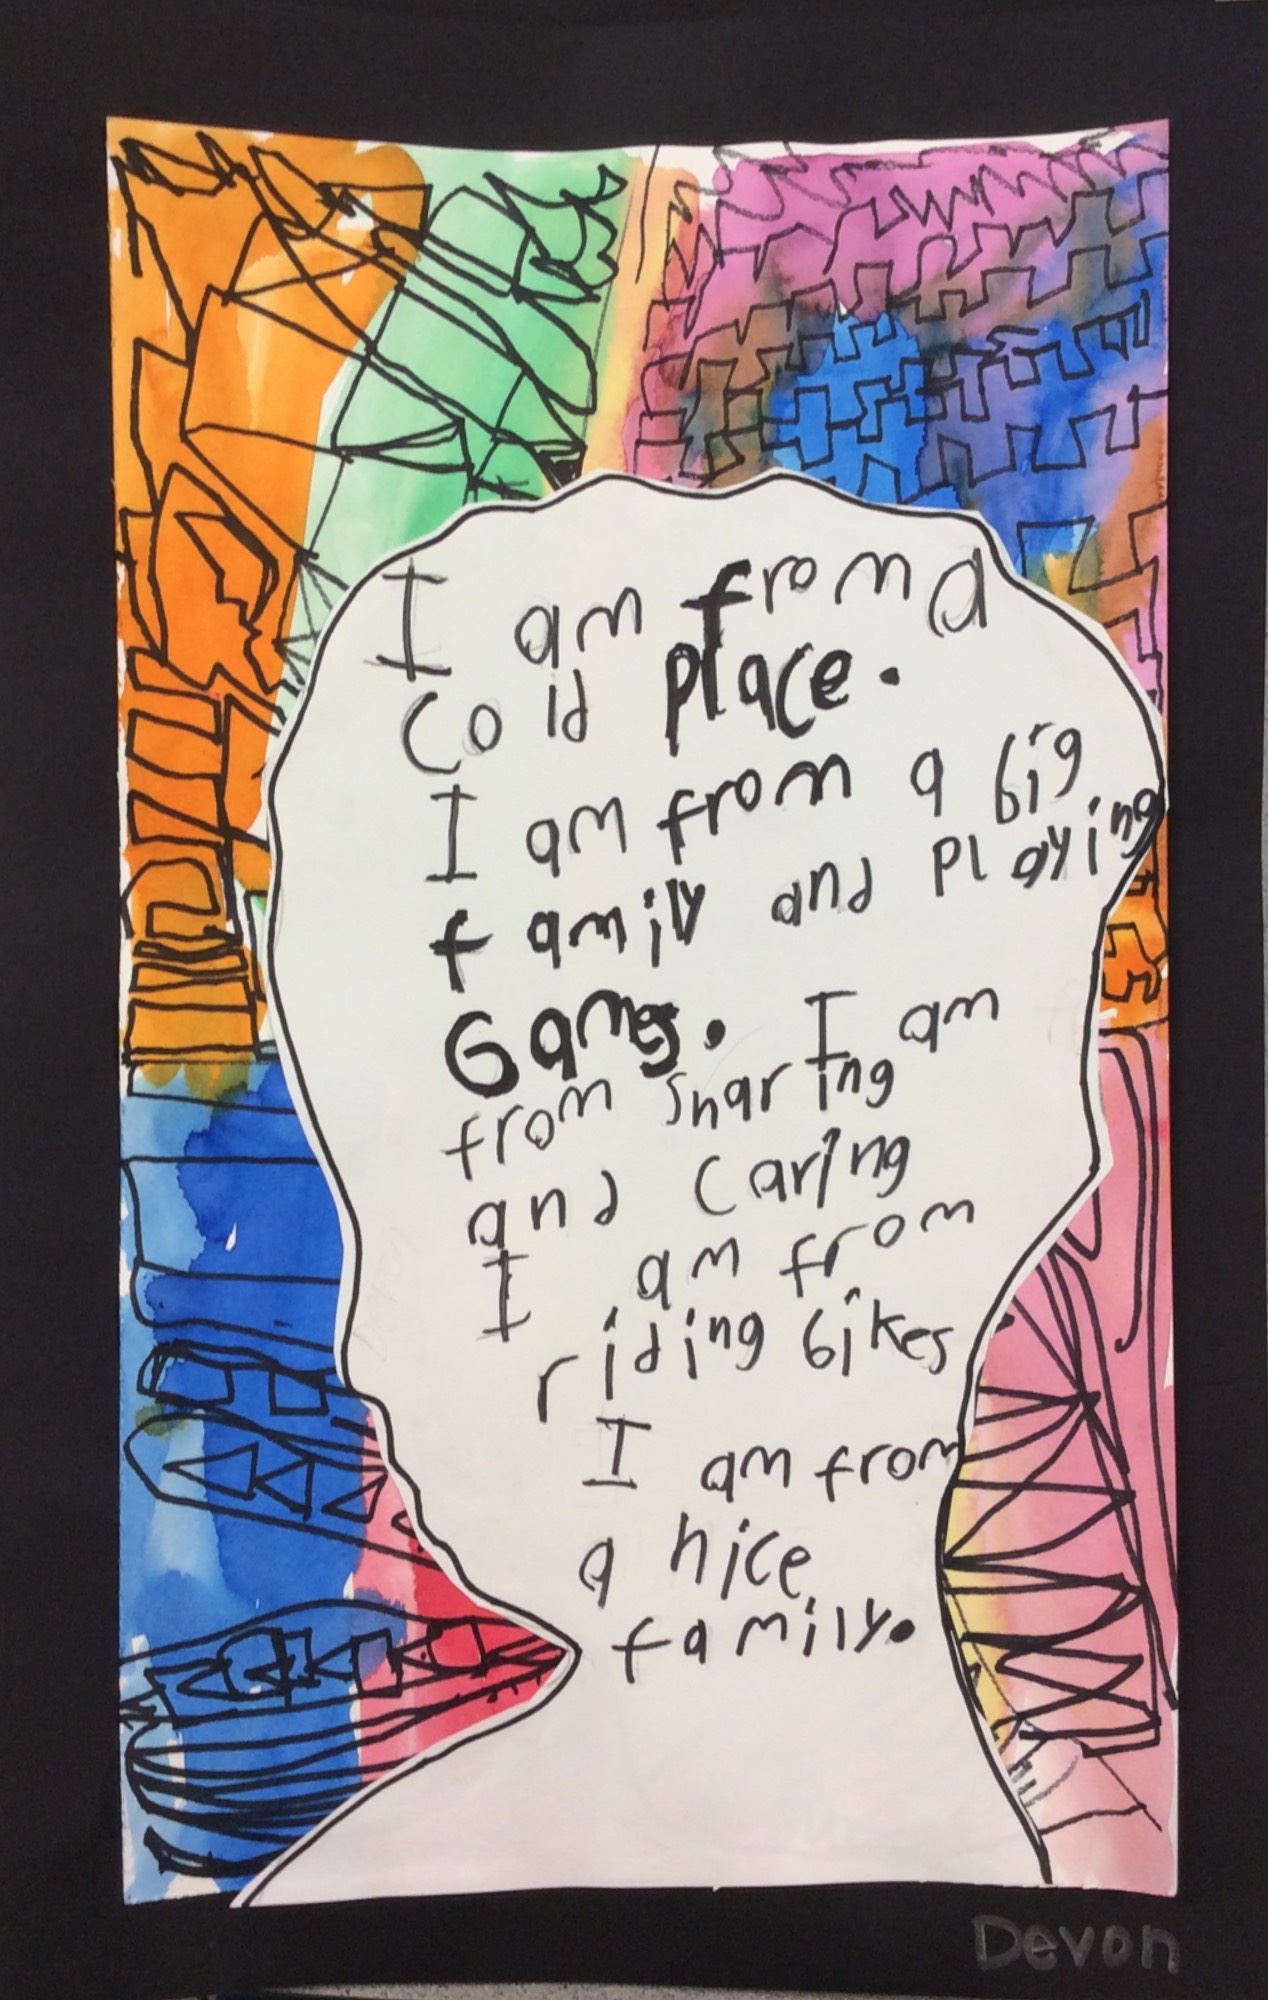 I am from a
Cold place.
I am from a big
family and playing
Games. I am
from sharing
and caring
I am from
riding bikes
I am from
a nice
family.
Devon